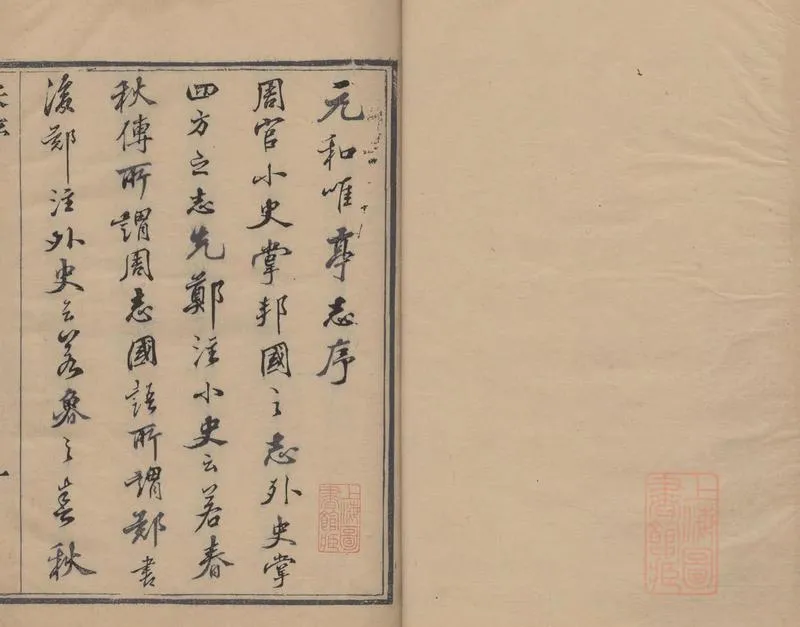 元和唯亭志序
周官小史掌邦國之志外史掌
四方之志先鄭注小史云若春
秋傳所謂周志國語所謂鄭書
後鄭注外史云若魯之春秋
上海圖書館藏
上海圖書館藏